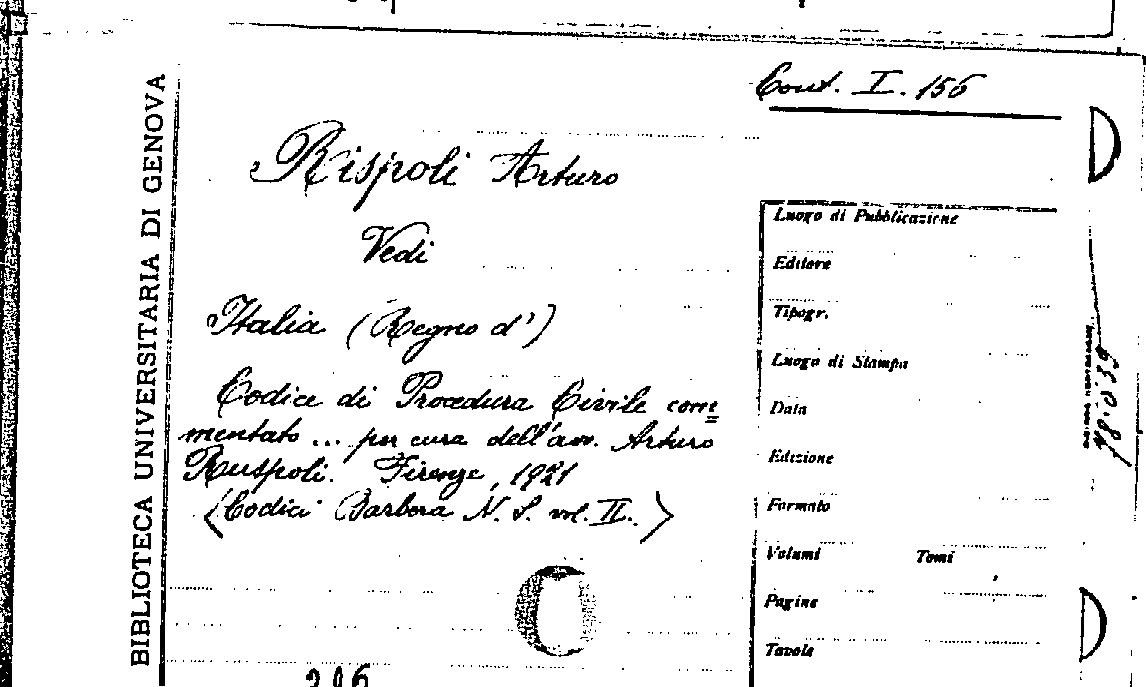 Cont. I. 156
BIBLIOTECA UNIVERSITARIA DI GENOVA
Rispoli Arturo
Vedi
Italia (Regno d')
Codice di Procedura Civile com=
mentato ... per cura dell'avv. Arturo
Ruspoli. Firenze, 1921
(Codici Barbera N. S. vol. II.)
Luogo di Pubblicazione
Editore
Tipogr.
Luogo di Stampa
Data
Edizione
Formato
Volumi Tomi
Pagine
Tavole